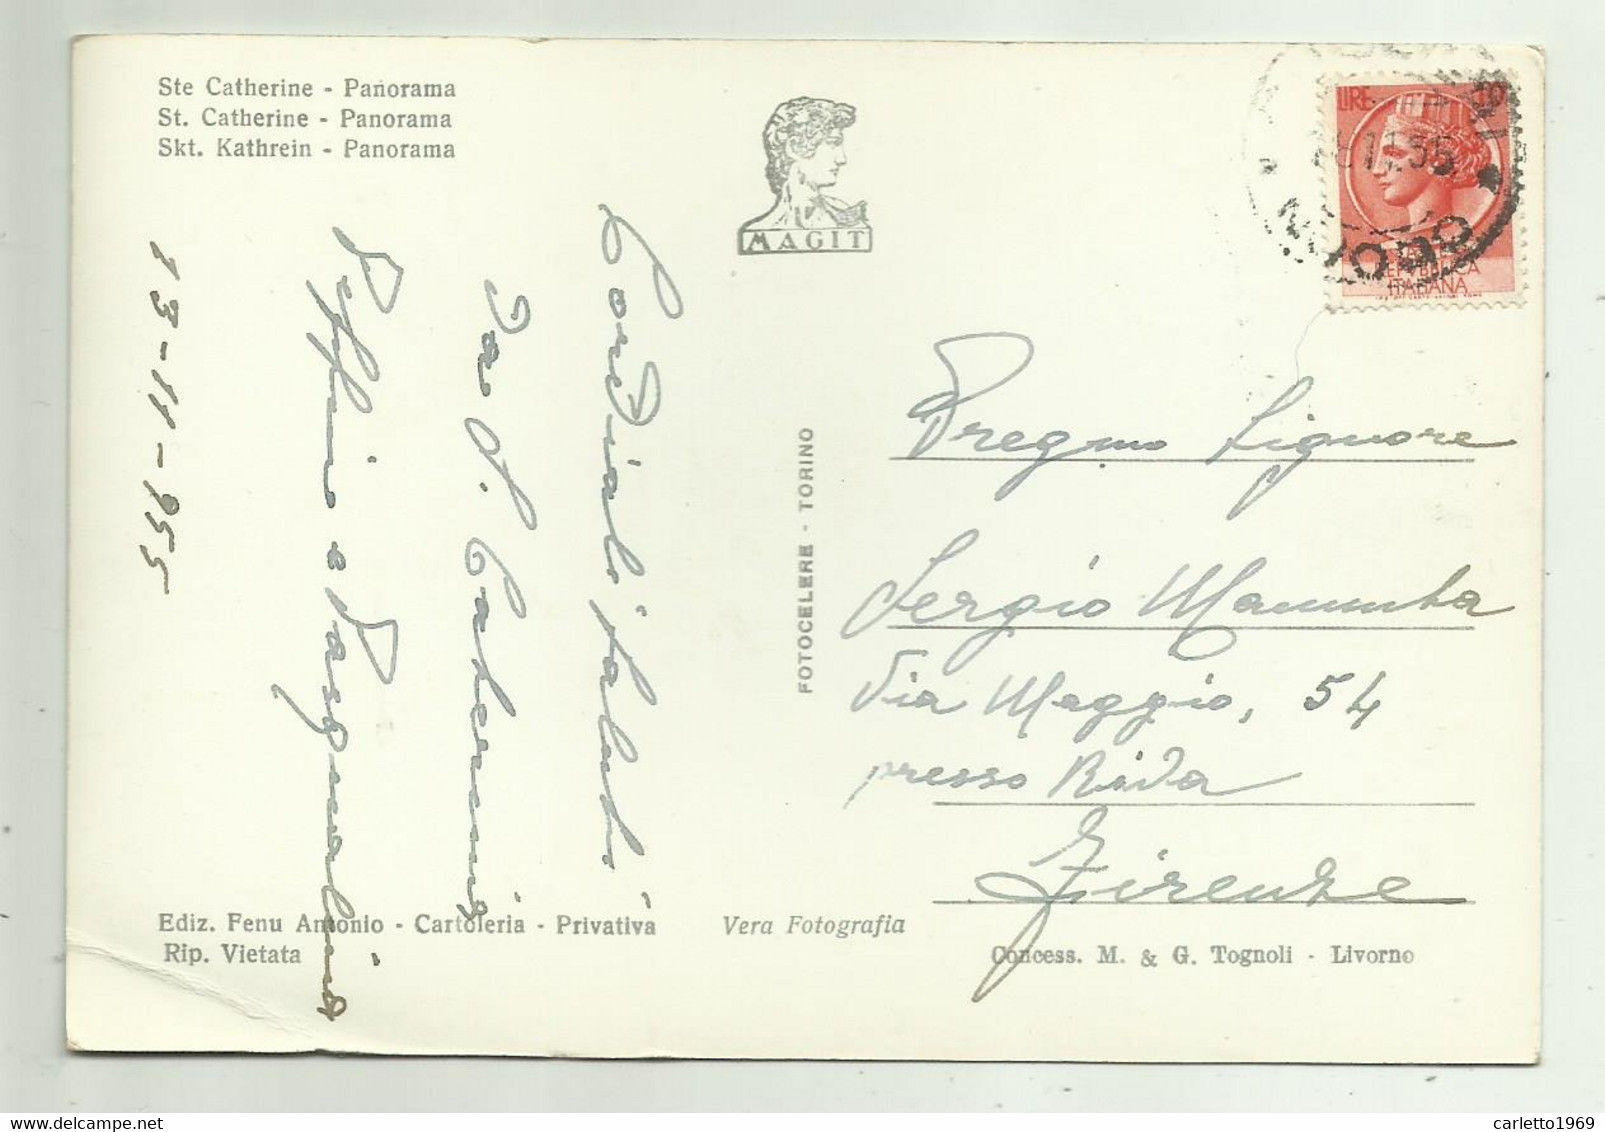 Ste Catherine - Panorama
St. Catherine - Panorama
Skt. Kathrein - Panorama
MAGIT
LIRE 10
REPUBBLICA
ITALIANA
NUORO
13-11-955
Cordiali saluti
da S. Caterina
Peppino e Pasqualina
FOTOCELERE - TORINO
Pregmo Signore
Sergio
Via Maggio, 54
presso
Firenze
Ediz. Fenu Antonio - Cartoleria - Privativa
Rip. Vietata
Vera Fotografia
Concess. M. & G. Tognoli - Livorno
carletto1969